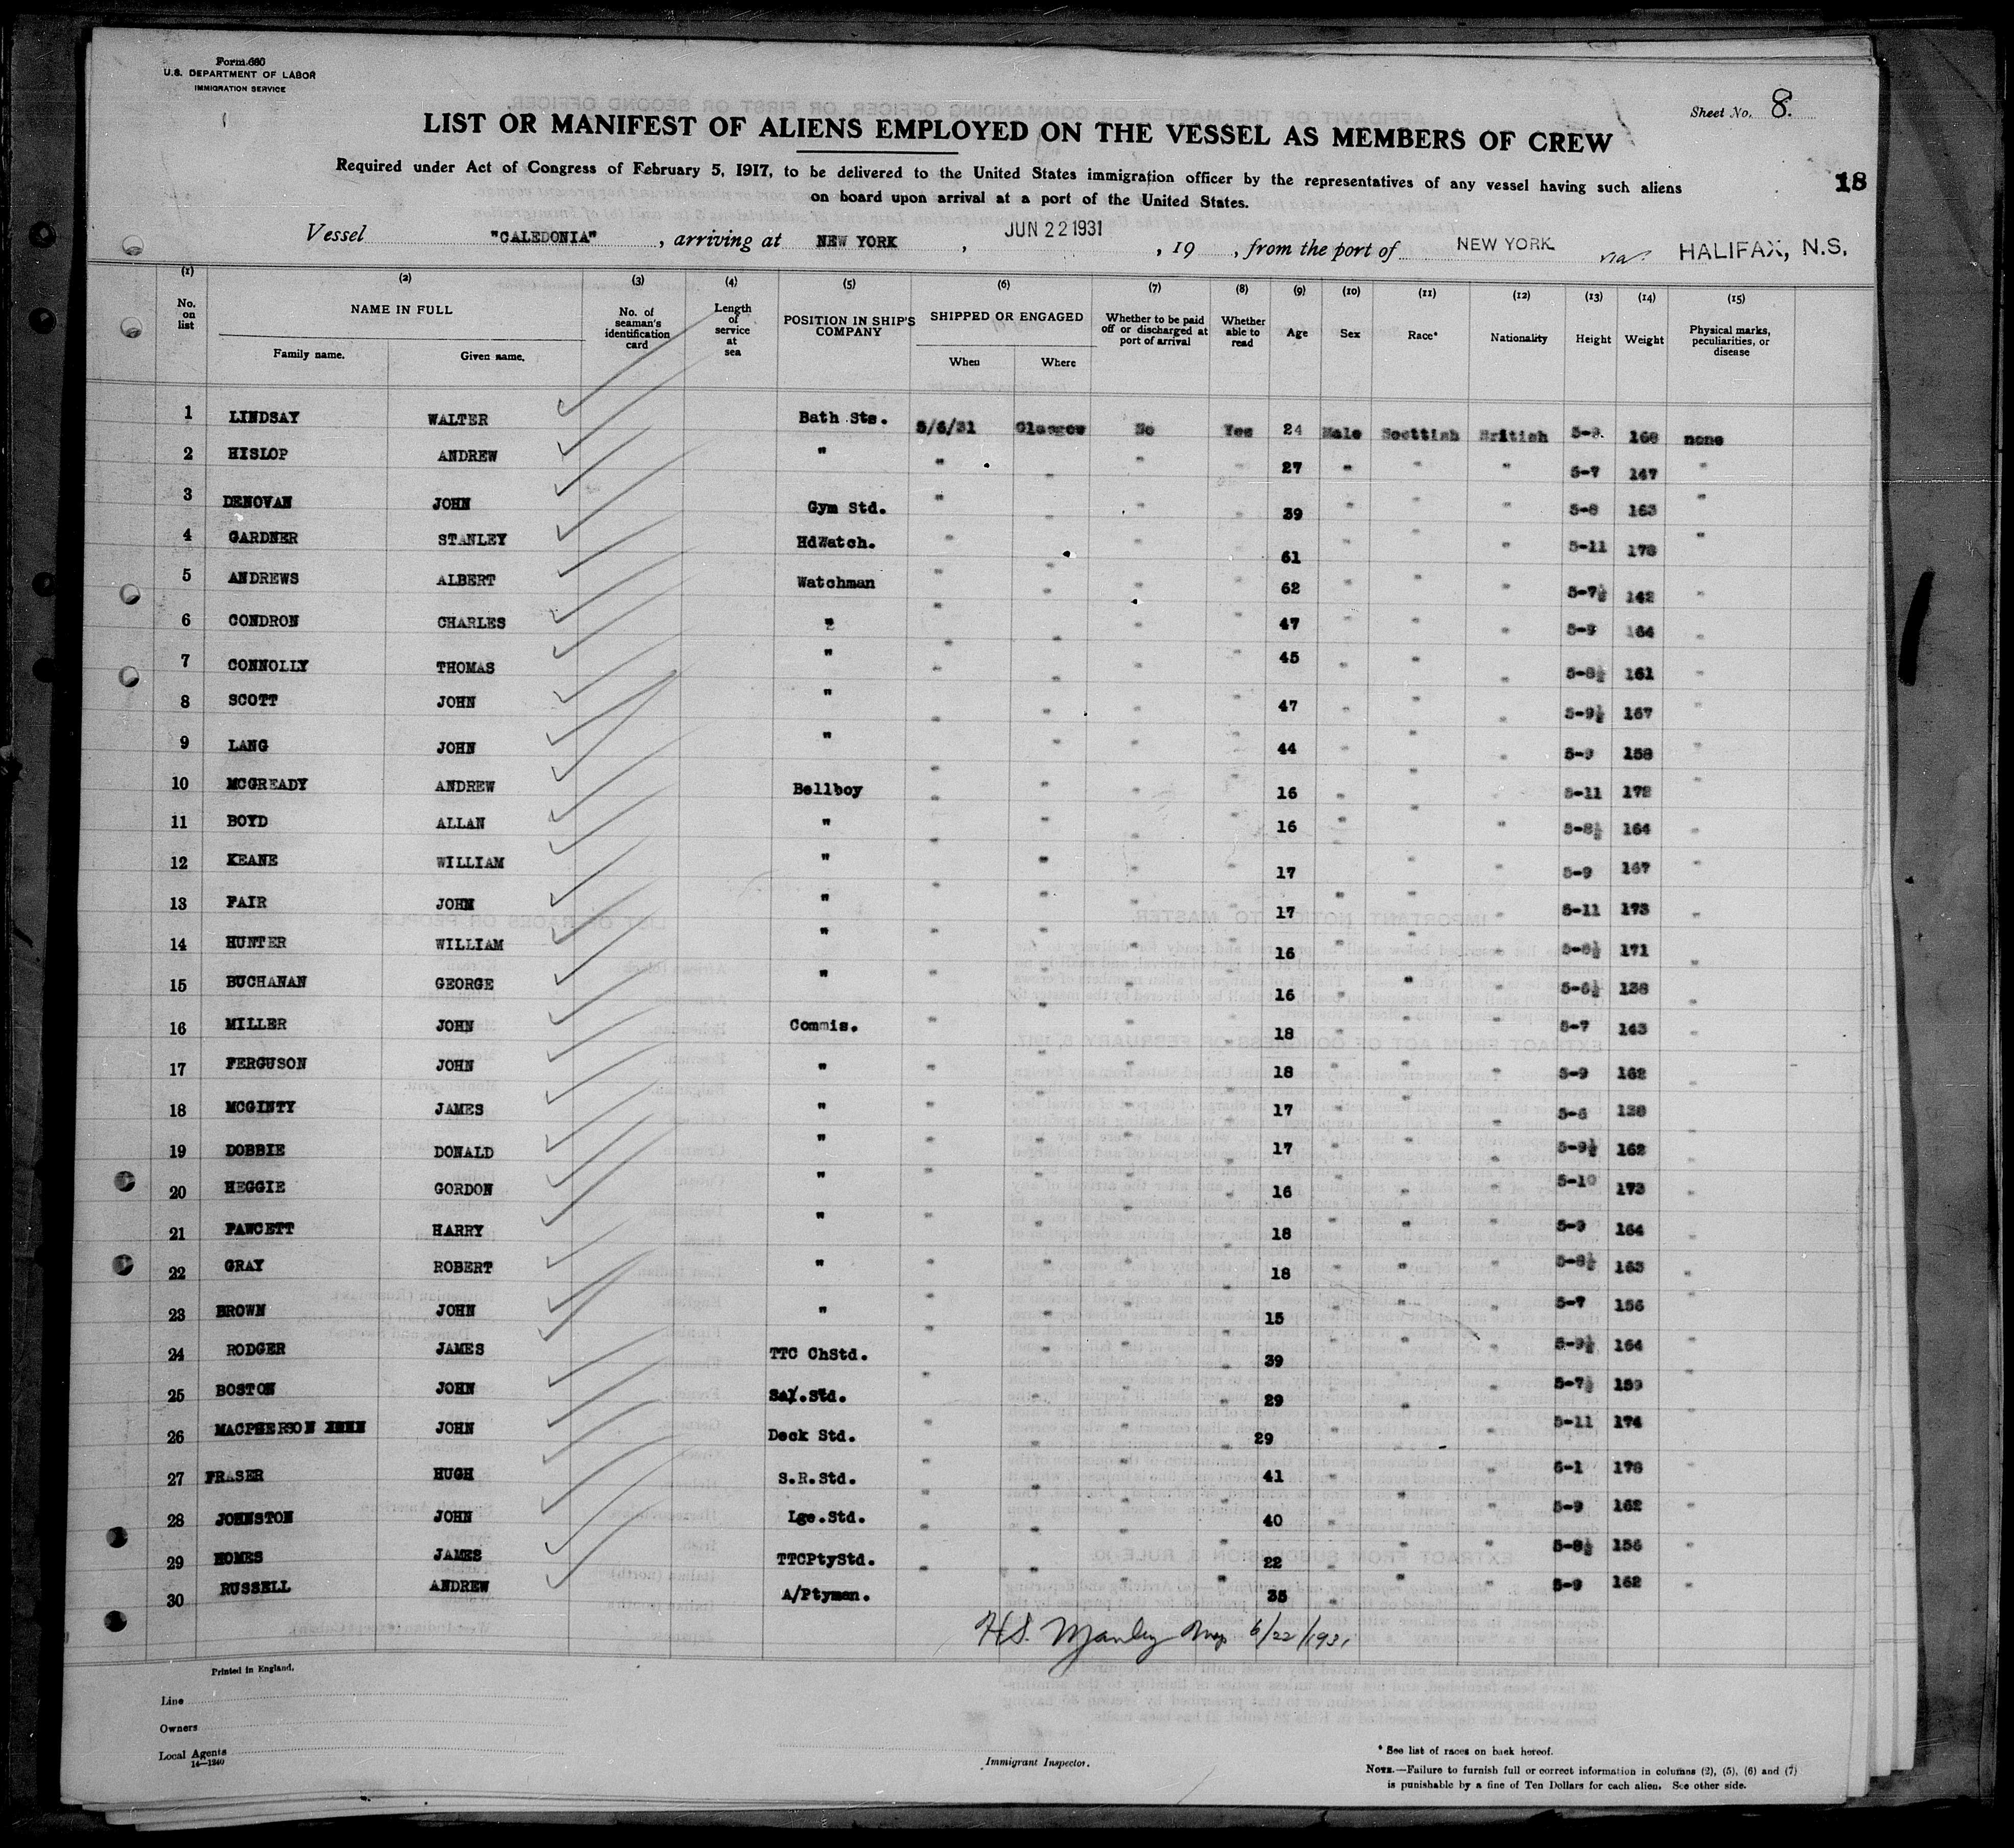 Form 680
U.S. DEPARTMENT OF LABOR
IMMIGRATION SERVICE
Sheet No. 8.
LIST OR MANIFEST OF ALIENS EMPLOYED ON THE VESSEL AS MEMBERS OF CREW
Required under Act of Congress of February 5, 1917, to be delivered to the United States immigration officer by the representatives of any vessel having such aliens
on board upon arrival at a port of the United States.
18
Vessel "CALEDONIA", arriving at NEW YORK, JUN 22 1931, 19 , from the port of NEW YORK via HALIFAX, N.S.
(1) (2) (3) (4) (5) (6) (7) (8) (9) (10) (11) (12) (13) (14) (15)
No. on list NAME IN FULL Family name. Given name. No. of seaman's identification card Length of service at sea POSITION IN SHIP'S COMPANY SHIPPED OR ENGAGED When Where Whether to be paid off or discharged at port of arrival Whether able to read Age Sex Race* Nationality Height Weight Physical marks, peculiarities, or disease
1 LINDSAY WALTER Bath Sts. 5/6/31 Glasgow No Yes 24 Male Scottish British 5-9 168 none
2 HISLOP ANDREW " " " " " 27 " " " 5-7 147 "
3 DENOVAN JOHN Gym Std. " " " " 39 " " " 5-8 163 "
4 GARDNER STANLEY HdWatch. " " " " 61 " " " 5-11 178 "
5 ANDREWS ALBERT Watchman " " " " 62 " " " 5-7½ 142 "
6 CONDRON CHARLES " " " " " 47 " " " 5-9 164 "
7 CONNOLLY THOMAS " " " " " 45 " " " 5-8½ 161 "
8 SCOTT JOHN " " " " " 47 " " " 5-9½ 167 "
9 LANG JOHN " " " " " 44 " " " 5-9 158 "
10 MCGREADY ANDREW Bellboy " " " " 16 " " " 5-11 172 "
11 BOYD ALLAN " " " " " 16 " " " 5-8½ 164 "
12 KEANE WILLIAM " " " " " 17 " " " 5-9 167 "
13 FAIR JOHN " " " " " 17 " " " 5-11 173 "
14 HUNTER WILLIAM " " " " " 16 " " " 5-8½ 171 "
15 BUCHANAN GEORGE " " " " " 16 " " " 5-6½ 138 "
16 MILLER JOHN Commis. " " " " 18 " " " 5-7 143 "
17 FERGUSON JOHN " " " " " 18 " " " 5-9 162 "
18 MCGINTY JAMES " " " " " 17 " " " 5-6 138 "
19 DOBBIE DONALD " " " " " 17 " " " 5-9½ 162 "
20 HEGGIE GORDON " " " " " 16 " " " 5-10 173 "
21 FAWCETT HARRY " " " " " 18 " " " 5-9 164 "
22 GRAY ROBERT " " " " " 18 " " " 5-8½ 163 "
23 BROWN JOHN " " " " " 15 " " " 5-7 156 "
24 RODGER JAMES TTC ChStd. " " " " 39 " " " 5-9½ 164 "
25 BOSTON JOHN Sal.Std. " " " " 29 " " " 5-7½ 159 "
26 MACPHERSON JOHN Deck Std. " " " " 29 " " " 5-11 174 "
27 FRASER HUGH S.R.Std. " " " " 41 " " " 6-1 178 "
28 JOHNSTON JOHN Lge.Std. " " " " 40 " " " 5-9 162 "
29 HOMES JAMES TTCPtyStd. " " " " 22 " " " 5-8½ 156 "
30 RUSSELL ANDREW A/Ptyman. " " " " 35 " " " 5-9 162 "
H.S. Manley Insp 6/22/1931
Printed in England.
Line
Owners
Local Agents
14—1240
Immigrant Inspector.
* See list of races on back hereof.
NOTE.—Failure to furnish full or correct information in columns (2), (5), (6) and (7)
is punishable by a fine of Ten Dollars for each alien. See other side.